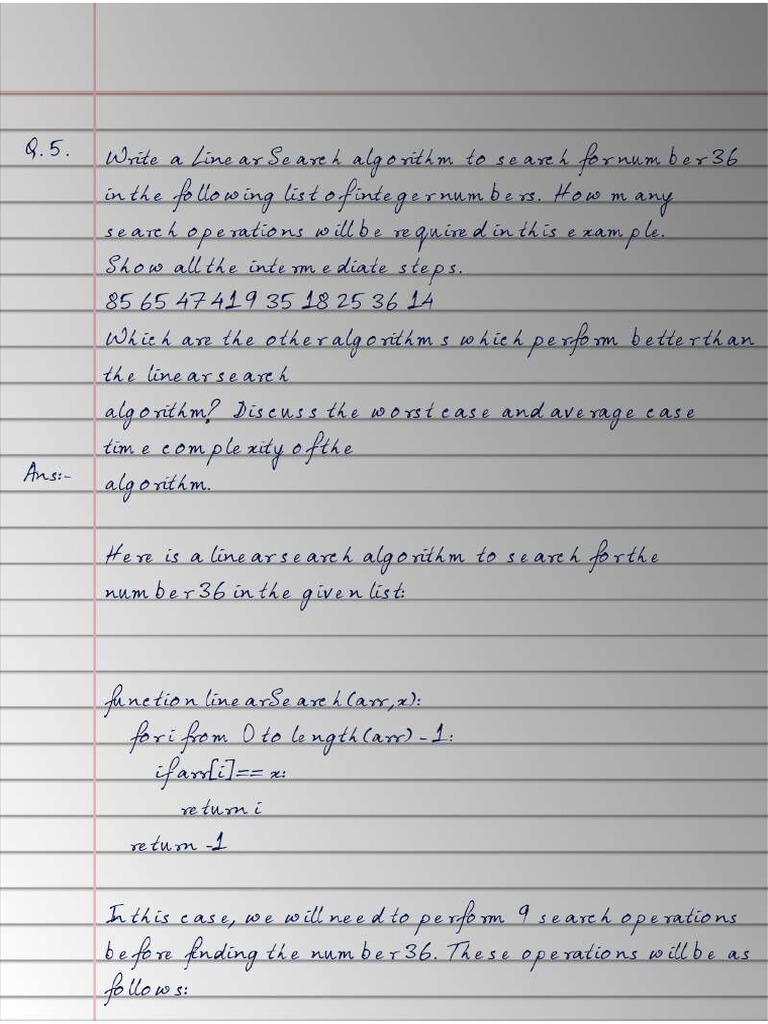 Q.5. Write a Linear Search algorithm to search for number 36
in the following list of integer numbers. How many
search operations will be required in this example.
Show all the intermediate steps.
85 65 47 419 35 18 25 36 14
Which are the other algorithms which perform better than
the linear search
algorithm? Discuss the worst case and average case
time complexity of the
Ans:- algorithm.
Here is a linear search algorithm to search for the
number 36 in the given list:
function linearSearch(arr,x):
for i from 0 to length(arr) - 1:
if arr[i] == x:
return i
return -1
In this case, we will need to perform 9 search operations
before finding the number 36. These operations will be as
follows: